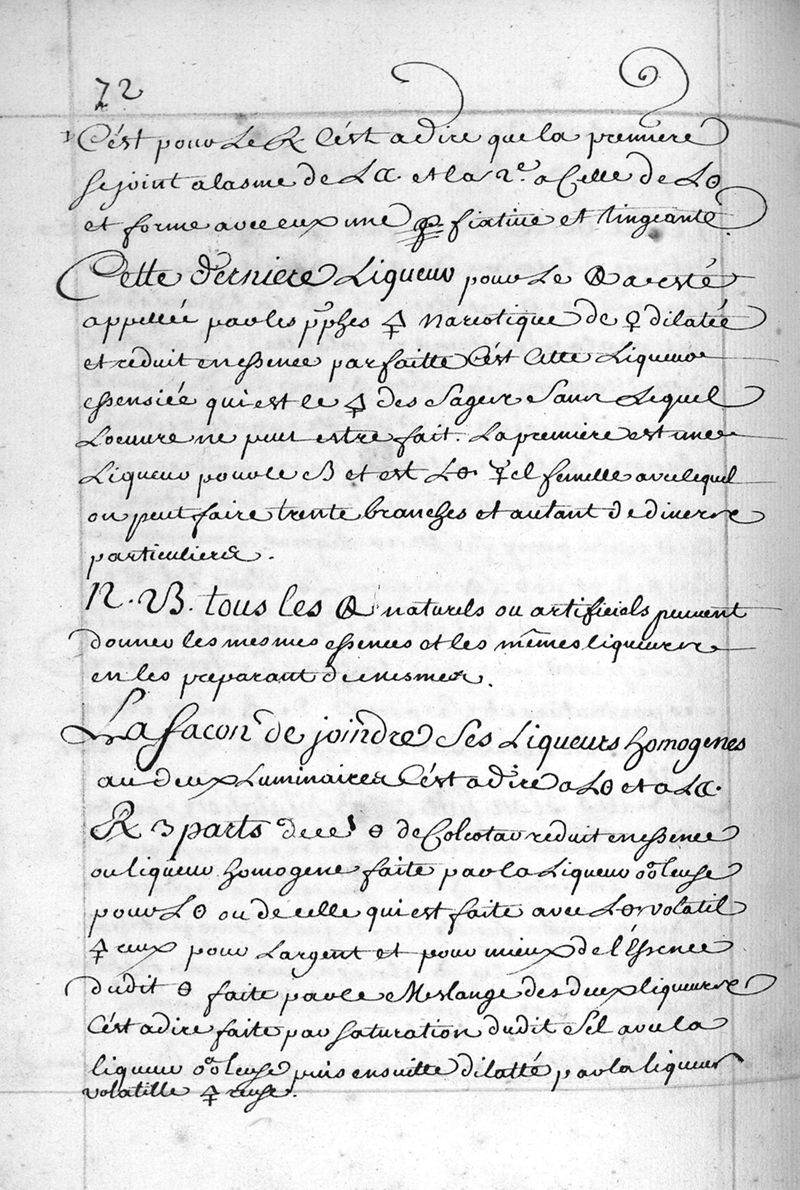 72
C'est pour le R C'est a dire que la premiere
se joint a lasme de L☾. et la 2.e a Celle de L☉
et forme avec eux une fixative et tingeante.
Cette derniere Liqueur pour Le a esté
appellée par les pphes 🜍 Narcotique de ♀ dilatée
et reduit en essence parfaitte C'est Cette Liqueur
essensiée qui est le 🜍 des Sages Sans Lequel
Loeuure ne peut estre fait. La premiere est une
Liqueur pour le B et est L☉. ☿el femelle avec lequel
on peut faire trente branches et autant de diverse
particuliers.
N. B. tous les naturels ou artificiels peuvent
donner les mesmes essences et les mêmes liqueurs
en les preparant de mesmes.
La facon de joindre Ses Liqueurs homogenes
au deux Luminaires C'est a dire a L☉ et a L☾.
R 3 parts de ce θ de Colcotar reduit en essence
ou liqueur homogene faite par la Liqueur oleuse
pour L☉ ou de celle qui est faite avec volatil
🜍 eux pour Largent et pour mieux de l'Essence
dudit θ faite par le Meslange des deux liqueurs
C'est a dire faite par saturation dudit Sel avec la
liqueur oleuse puis ensuitte dilatté par la liqueur
volatille 🜍 euse.